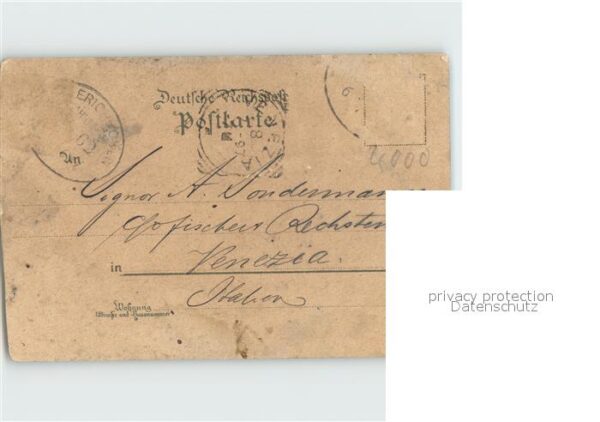 Deutsche Reichspost
Postkarte
ERIC
6
VENEZIA
8
4000
An
Signor A. Sonderman
in Venezia.
Italien
Wohnung
(Straße und Hausnummer)
privacy protection
Datenschutz